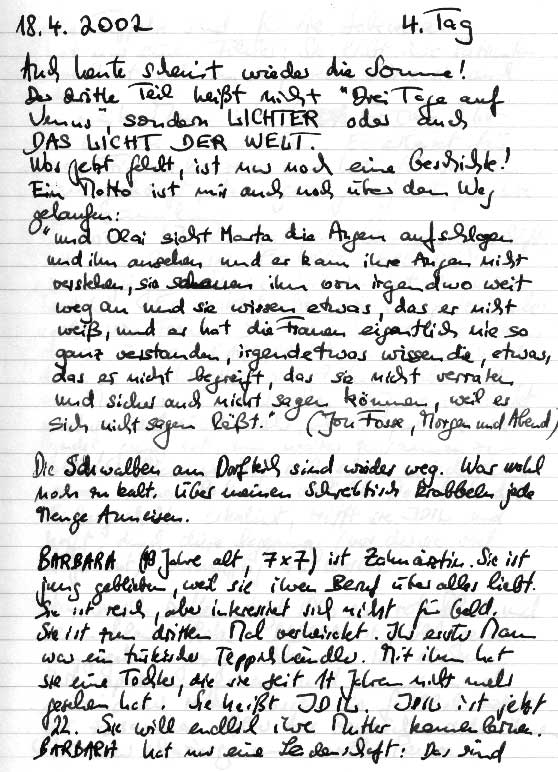 18.4.2002 4. Tag
Auch heute scheint wieder die Sonne!
Der dritte Teil heißt nicht "Drei Tage auf
Venus", sondern LICHTER oder auch
DAS LICHT DER WELT.
Was jetzt fehlt, ist nur noch eine Geschichte!
Ein Motto ist mir auch noch über den Weg
gelaufen:
"und Olai sieht Marta die Augen aufschlagen
und ihn ansehen und er kann ihre Augen nicht
verstehen, sie schauen ihn von irgendwo weit
weg an und sie wissen etwas, das er nicht
weiß, und er hat die Frauen eigentlich nie so
ganz verstanden, irgendetwas wissen die, etwas,
das er nicht begreift, das sie nicht verraten
und sicher auch nicht sagen können, weil es
sich nicht sagen läßt." (Jon Fosse, Morgen und Abend)
Die Schwalben am Dorfteich sind wieder weg. War wohl
noch zu kalt. Über meinen Schreibtisch krabbeln jede
Menge Ameisen.
BARBARA (Jahre alt, 7x7) ist Zahnärztin. Sie ist
jung geblieben, weil sie ihren Beruf über alles liebt.
Sie ist reich, aber interessiert sich nicht für Geld.
Sie ist zum dritten Mal verheiratet. Ihr erster Mann
war ein türkischer Teppichhändler. Mit ihm hat
sie eine Tochter, die sie seit Jahren nicht mehr
gesehen hat. Sie heißt IDIL. IDIL ist jetzt
22. Sie will endlich ihre Mutter kennenlernen.
BARBARA hat nur eine Leidenschaft: Das sind